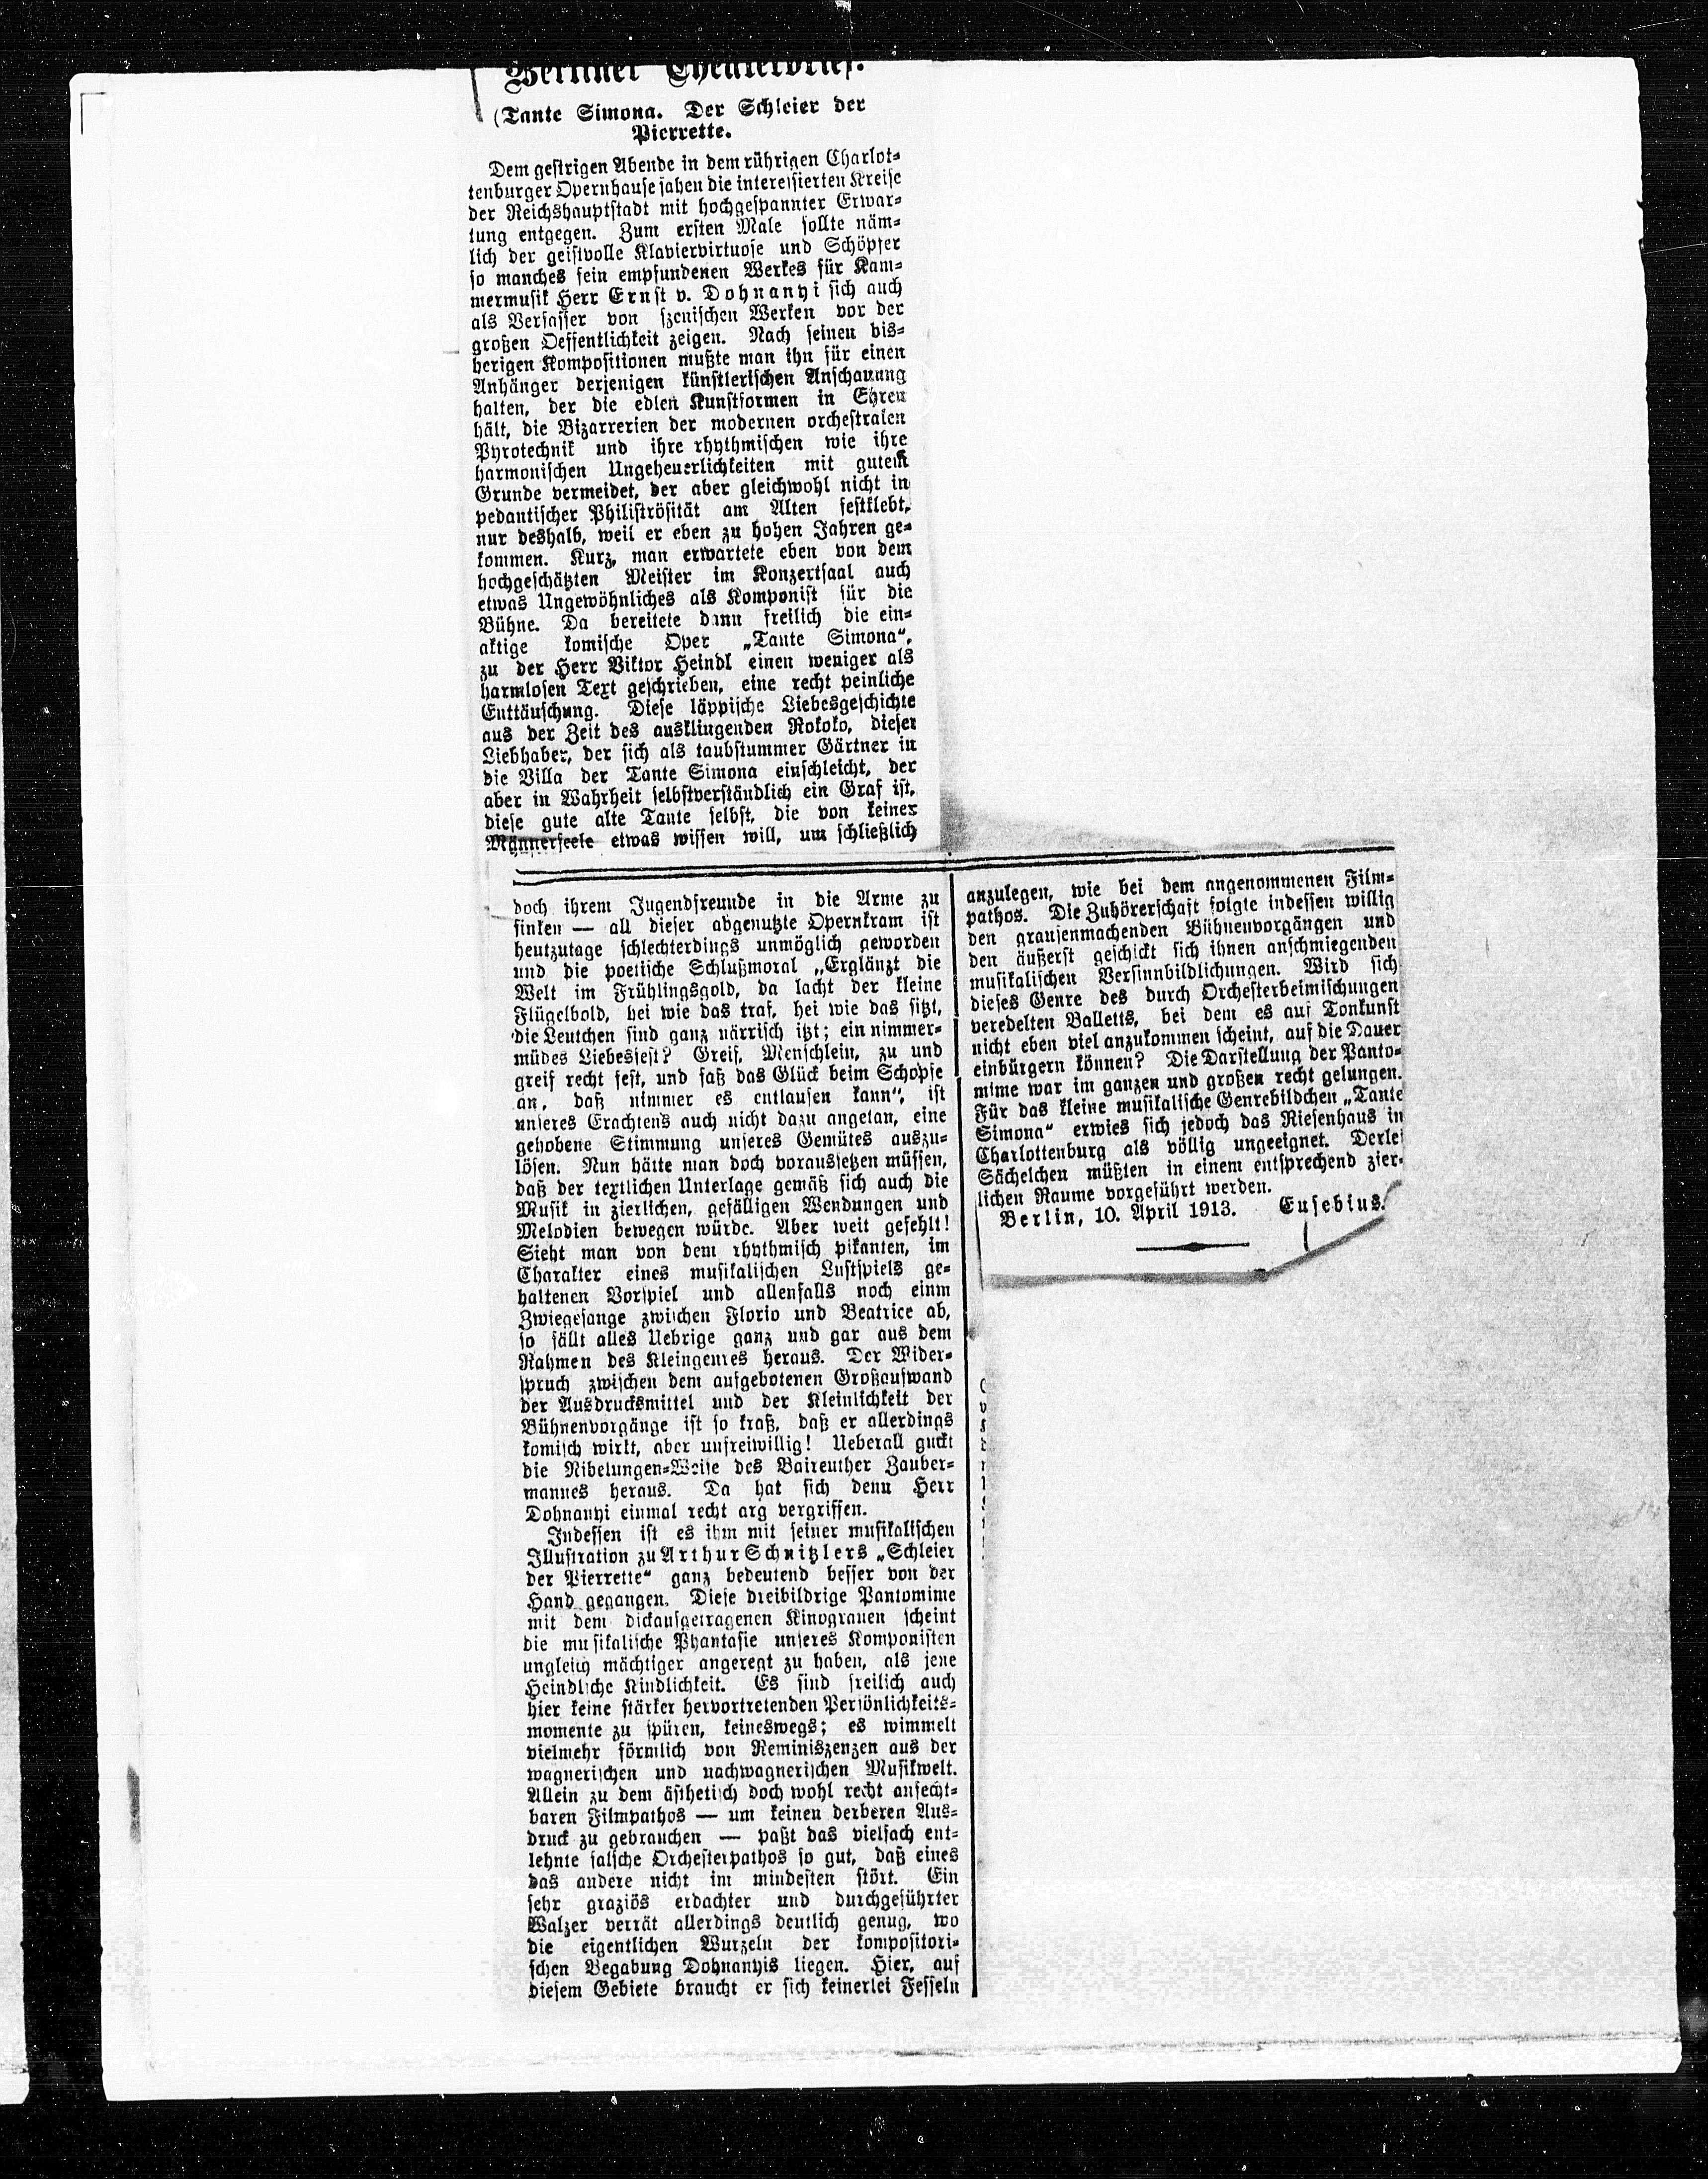 Berliner Theaterbrief.
(Tante Simona. Der Schleier der
Pierrette.
Dem gestrigen Abende in dem rührigen Charlot-
tenburger Opernhause sahen die interessierten Kreise
der Reichshauptstadt mit hochgespannter Erwar-
tung entgegen. Zum ersten Male sollte näm-
lich der geistvolle Klaviervirtuose und Schöpfer
so manches fein empfundenen Werkes für Kam-
mermusik Herr Ernst v. Dohnanyi sich auch
als Verfasser von szenischen Werken vor der
großen Oeffentlichkeit zeigen. Nach seinen bis-
herigen Kompositionen mußte man ihn für einen
Anhänger derjenigen künstlerischen Anschauung
halten, der die edlen Kunstformen in Ehren
hält, die Bizarrerien der modernen orchestralen
Pyrotechnik und ihre rhythmischen wie ihre
harmonischen Ungeheuerlichkeiten mit gutem
Grunde vermeidet, der aber gleichwohl nicht in
pedantischer Philiströsität am Alten festklebt,
nur deshalb, weil er eben zu hohen Jahren ge-
kommen. Kurz, man erwartete eben von dem
hochgeschätzten Meister im Konzertsaal auch
etwas Ungewöhnliches als Komponist für die
Bühne. Da bereitete dann freilich die ein-
aktige komische Oper „Tante Simona“,
zu der Herr Viktor Heindl einen weniger als
harmlosen Text geschrieben, eine recht peinliche
Enttäuschung. Diese läppische Liebesgeschichte
aus der Zeit des ausklingenden Rokoko, dieser
Liebhaber, der sich als taubstummer Gärtner in
die Villa der Tante Simona einschleicht, der
aber in Wahrheit selbstverständlich ein Graf ist,
diese gute alte Tante selbst, die von keiner
Männerseele etwas wissen will, um schließlich
doch ihrem Jugendfreunde in die Arme zu
sinken — all dieser abgenutzte Opernkram ist
heutzutage schlechterdings unmöglich geworden
und die poetische Schlußmoral „Erglänzt die
Welt im Frühlingsgold, da lacht der kleine
Flügelbold, hei wie das traf, hei wie das sitzt,
die Leutchen sind ganz närrisch itzt; ein nimmer-
müdes Liebesfest? Greif, Menschlein, zu und
greif recht fest, und faß das Glück beim Schopfe
an, daß nimmer es entlaufen kann“, ist
unseres Erachtens auch nicht dazu angetan, eine
gehobene Stimmung unseres Gemütes auszu-
lösen. Nun hätte man doch voraussetzen müssen,
daß der textlichen Unterlage gemäß sich auch die
Musik in zierlichen, gefälligen Wendungen und
Melodien bewegen würde. Aber weit gefehlt!
Sieht man von dem rhythmisch pikanten, im
Charakter eines musikalischen Lustspiels ge-
haltenen Vorspiel und allenfalls noch einm
Zwiegesange zwischen Florio und Beatrice ab,
so fällt alles Uebrige ganz und gar aus dem
Rahmen des Kleingenres heraus. Der Wider-
spruch zwischen dem aufgebotenen Großaufwand
der Ausdrucksmittel und der Kleinlichkeit der
Bühnenvorgänge ist so kraß, daß er allerdings
komisch wirkt, aber unfreiwillig! Ueberall guckt
die Nibelungen-Weise des Baireuther Zauber-
mannes heraus. Da hat sich denn Herr
Dohnanyi einmal recht arg vergriffen.
Indessen ist es ihm mit seiner musikalischen
Illustration zu Arthur Schnitzlers „Schleier
der Pierrette“ ganz bedeutend besser von der
Hand gegangen. Diese dreibildrige Pantomime
mit dem dickaufgetragenen Kinograuen scheint
die musikalische Phantasie unseres Komponisten
ungleich mächtiger angeregt zu haben, als jene
Heindlsche Kindlichkeit. Es sind freilich auch
hier keine stärker hervortretenden Persönlichkeits-
momente zu spüren, keineswegs; es wimmelt
vielmehr förmlich von Reminiszenzen aus der
wagnerischen und nachwagnerischen Musikwelt.
Allein zu dem ästhetisch doch wohl recht anfecht-
baren Filmpathos — um keinen derberen Aus-
druck zu gebrauchen — paßt das vielfach ent-
lehnte falsche Orchesterpathos so gut, daß eines
das andere nicht im mindesten stört. Ein
sehr graziös erdachter und durchgeführter
Walzer verrät allerdings deutlich genug, wo
die eigentlichen Wurzeln der kompositori-
schen Begabung Dohnanyis liegen. Hier, auf
diesem Gebiete braucht er sich keinerlei Fesseln
anzulegen, wie bei dem angenommenen Film-
pathos. Die Zuhörerschaft folgte indessen willig
den grausenmachenden Bühnenvorgängen und
den äußerst geschickt sich ihnen anschmiegenden
musikalischen Versinnbildlichungen. Wird sich
dieses Genre des durch Orchesterbeimischungen
veredelten Balletts, bei dem es auf Tonkunst
nicht eben viel anzukommen scheint, auf die Dauer
einbürgern können? Die Darstellung der Panto-
mime war im ganzen und großen recht gelungen.
Für das kleine musikalische Genrebildchen „Tante
Simona“ erwies sich jedoch das Riesenhaus in
Charlottenburg als völlig ungeeignet. Derlei
Sächelchen müßten in einem entsprechend zier-
lichen Raume vorgeführt werden.
Berlin, 10. April 1913. Eusebius.